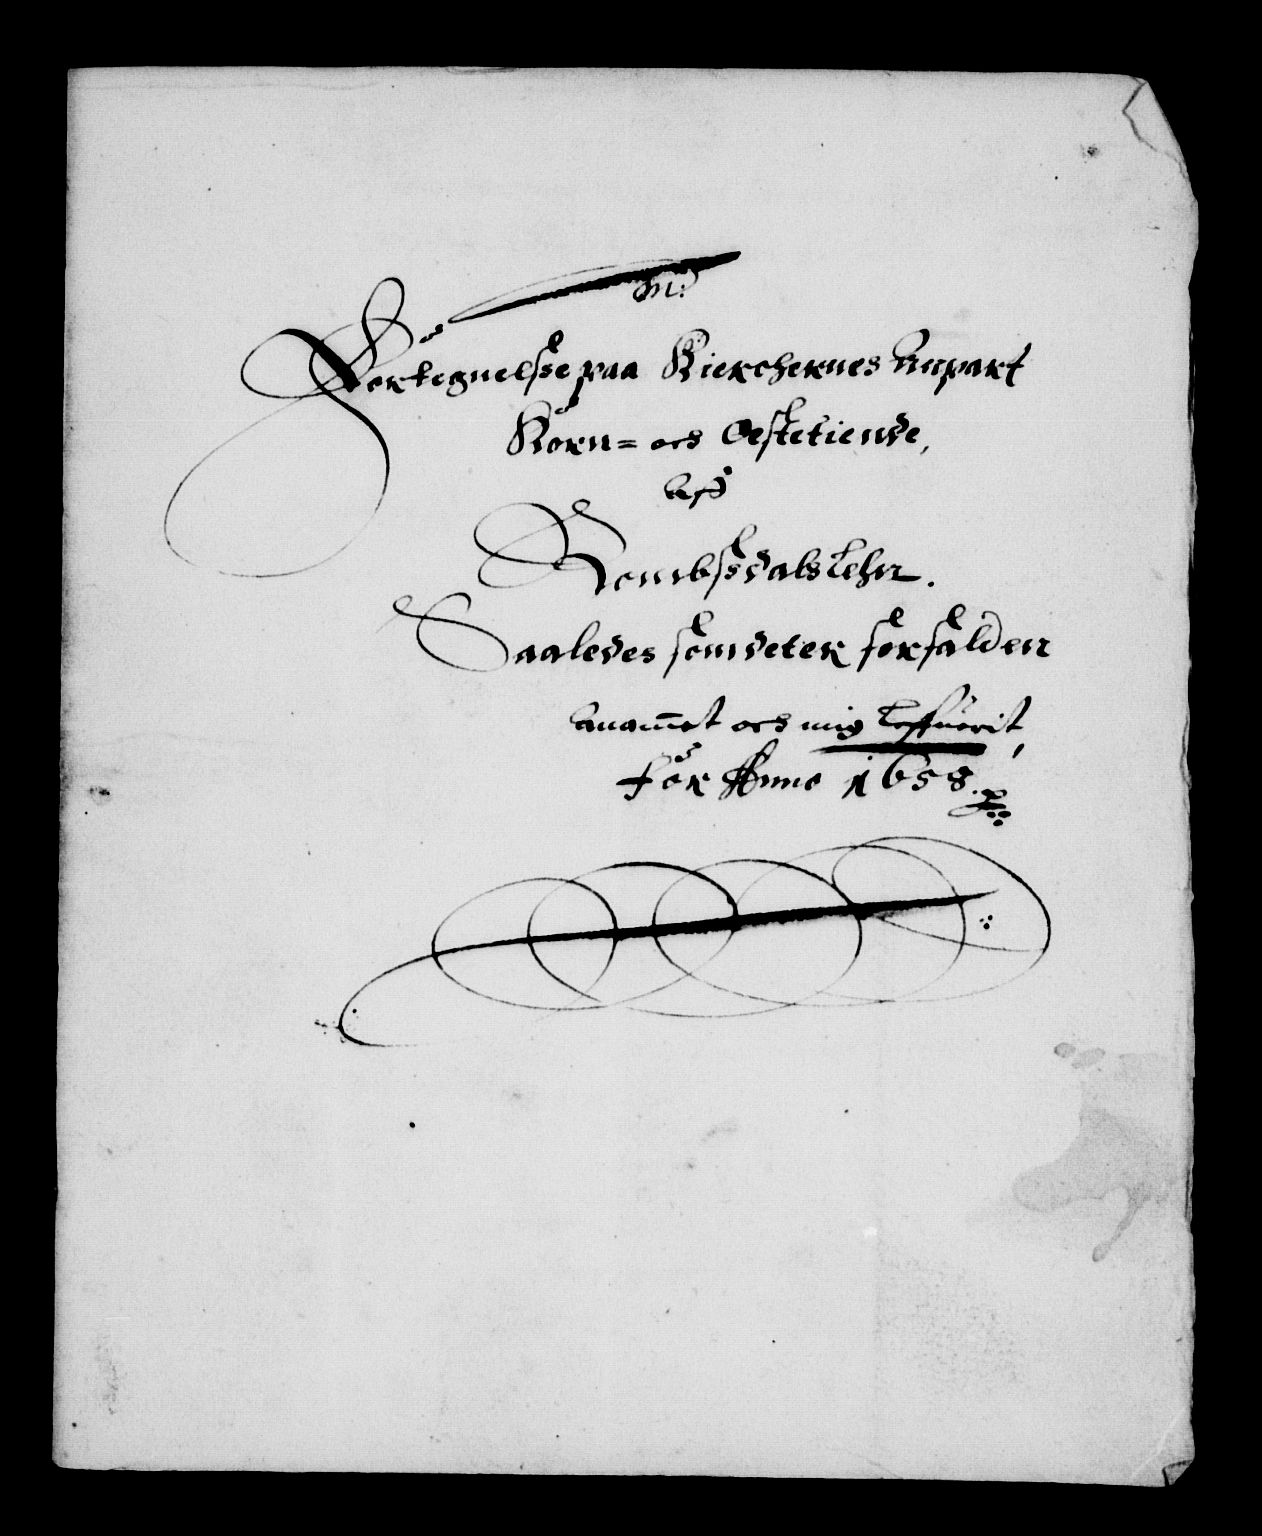 M:
Fortegnelsse paa Kierchernes Anpart
Korn= och Oestetiende,
Aff
Rombssdals Lehn.
Saaledes som deter forfalden
Anam̅et och mig Leffuerit,
for Anno 1658.